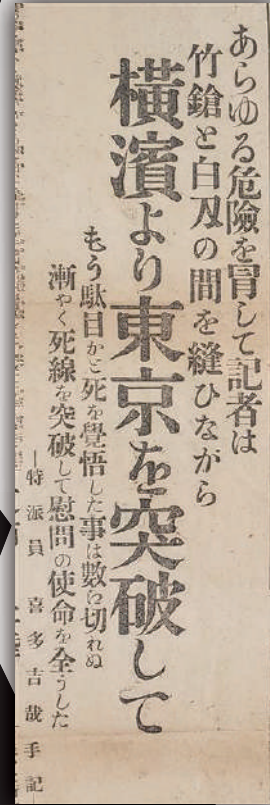 あらゆる危險を冐して記者は
竹鎗と白刄の間を縫ひながら
橫濱より東京を突破して
もう駄目かと死を覺悟した事は數へ切れぬ
漸やく死線を突破して慰問の使命を全うした
―特派員 喜多吉哉手記